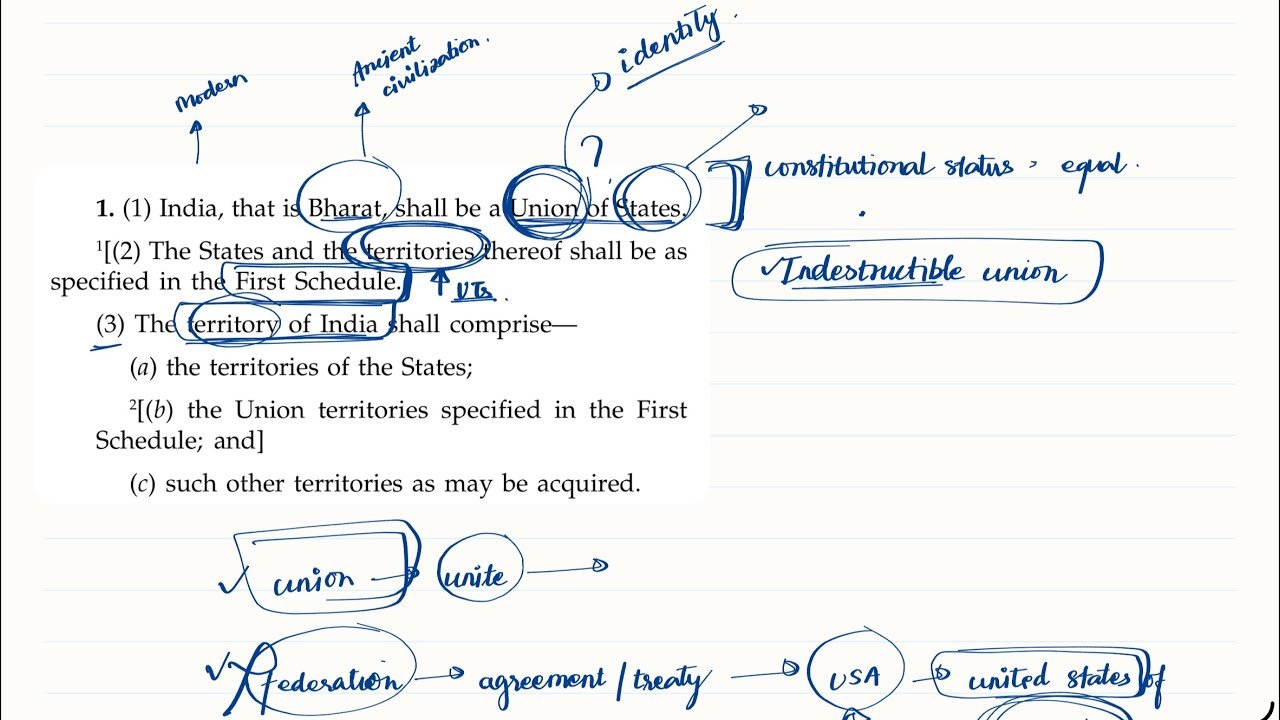 identity.
Ancient
civilization.
Modern
?
constitutional status > equal.
1. (1) India, that is Bharat, shall be a Union of States.
¹[(2) The States and the territories thereof shall be as
specified in the First Schedule.
Indestructible union
UTs.
(3) The territory of India shall comprise—
(a) the territories of the States;
²[(b) the Union territories specified in the First
Schedule; and]
(c) such other territories as may be acquired.
union → unite →
Federation → agreement / treaty → USA → united states of